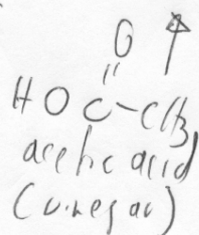 O
HO C-CH3
acetic acid
(vinegar)